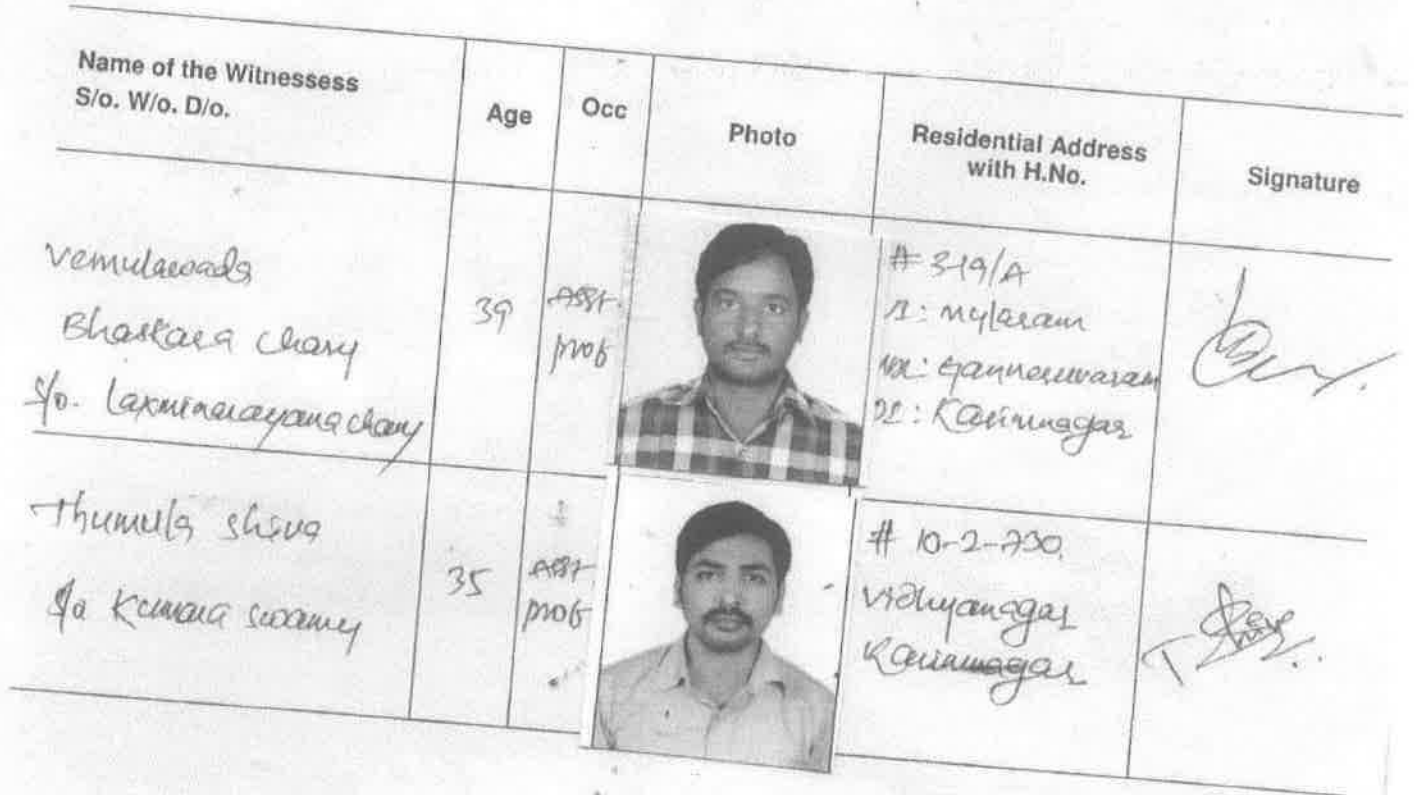 Name of the Witnessess
S/o. W/o. D/o.
Age
Occ
Photo
Residential Address
with H.No.
Signature
Vemulawada
Bhaskara chary
S/o. Laxminarayana chary
39
Asst.
prof
# 3-19/A
Mylaram
Ganneruvaram
Karimnagar
Thumula shiva
S/o Kumara swamy
35
Asst.
prof
# 10-2-730,
Vidhyanagar
Karimnagar